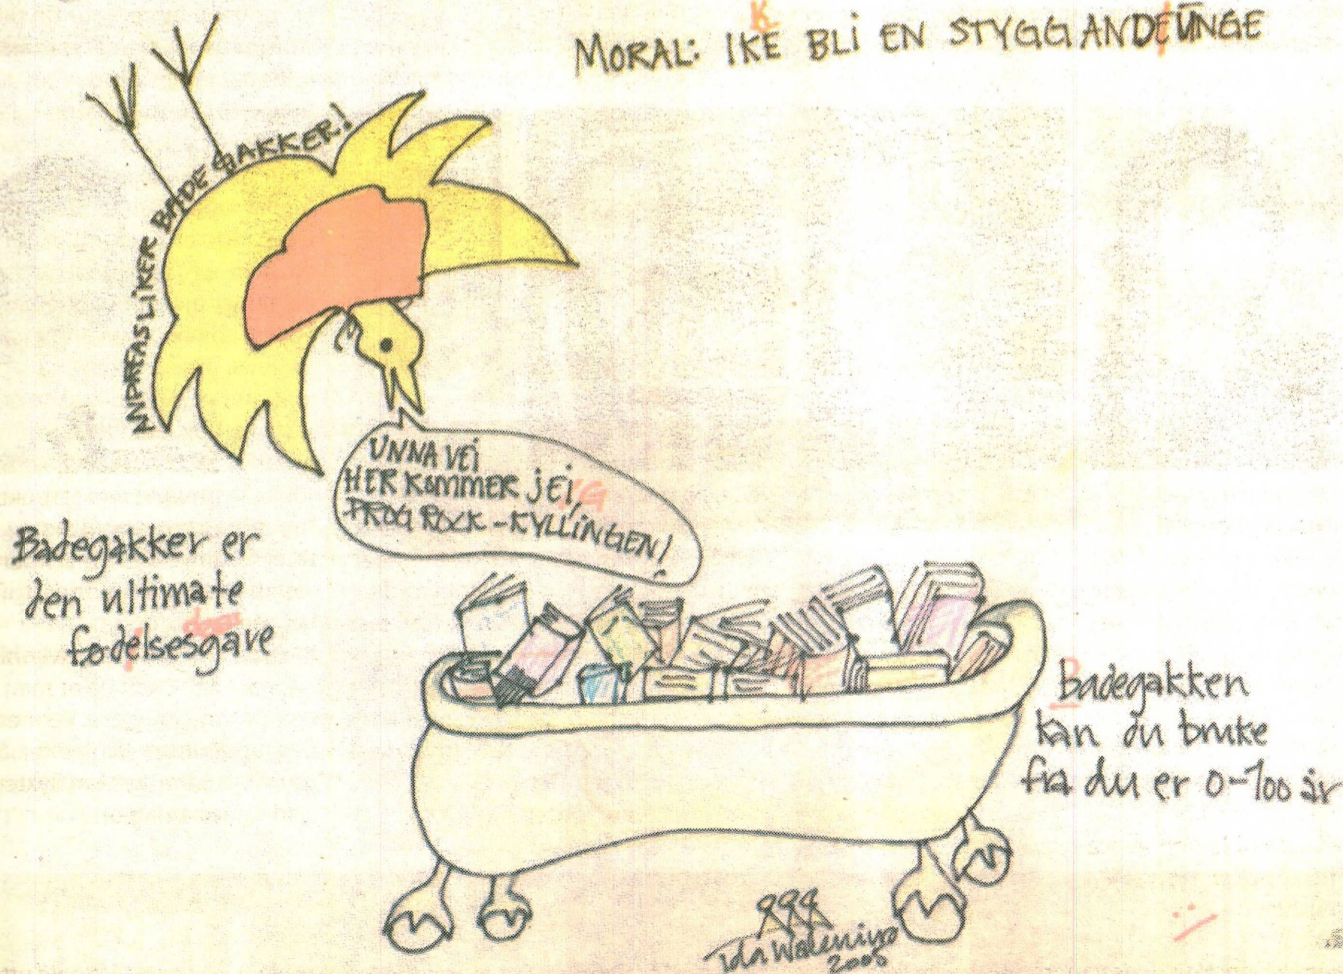 MORAL: IKE BLI EN STYGG ANDEUNGE
K
ANDREAS LIKER BADE GAKKER!
UNNA VEI
HER KOMMER JEI,
PROG ROCK-KYLLINGEN!
Badegakker er
den ultimate
fødelsesgave
Badegakken
kan du bruke
fra du er 0-100 år
2005